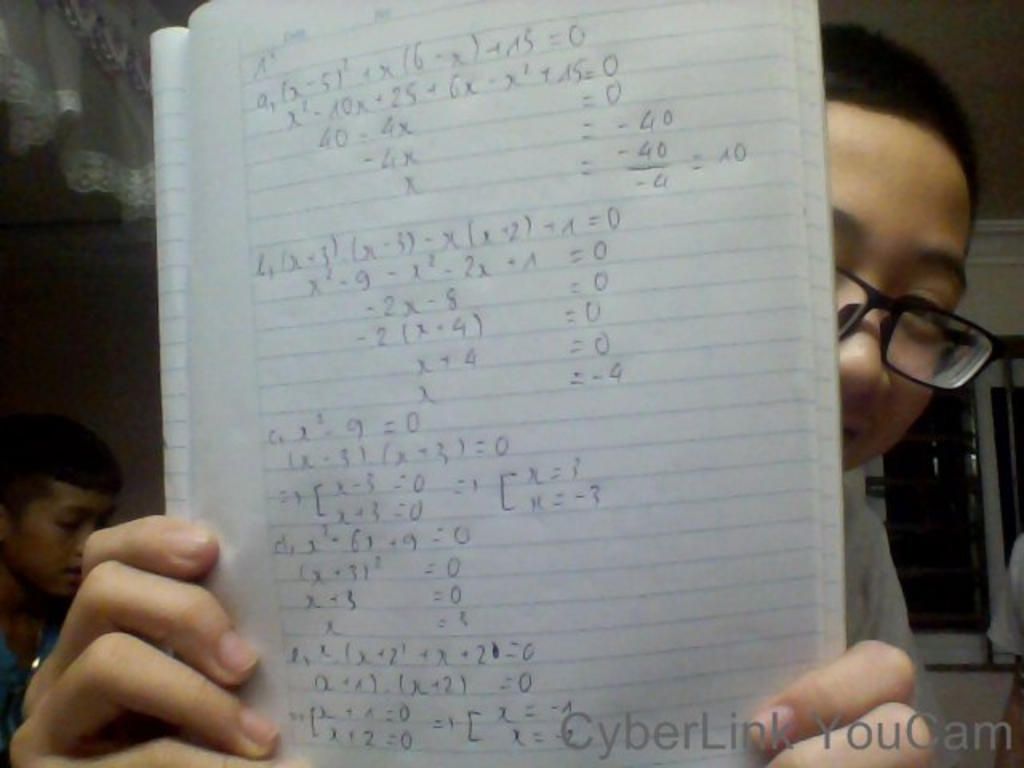 1,
a, (x-5)² + x(6-x) + 15 = 0
x² - 10x + 25 + 6x - x² + 15 = 0
40 - 4x = 0
- 4x = - 40
x = -40/-4 = 10
b, (x+3)(x-3) - x(x+2) + 1 = 0
x² - 9 - x² - 2x + 1 = 0
-2x - 8 = 0
-2(x+4) = 0
x + 4 = 0
x = -4
c, x² - 9 = 0
(x-3).(x+3) = 0
=> [ x-3 = 0 => [ x = 3
x+3 = 0 x = -3
d, x² - 6x + 9 = 0
(x+3)² = 0
x+3 = 0
x = 3
e, x.(x+2) + x+2 = 0
(x+1).(x+2) = 0
=> [ x+1 = 0 => [ x = -1
x+2 = 0 x = -2
CyberLink YouCam